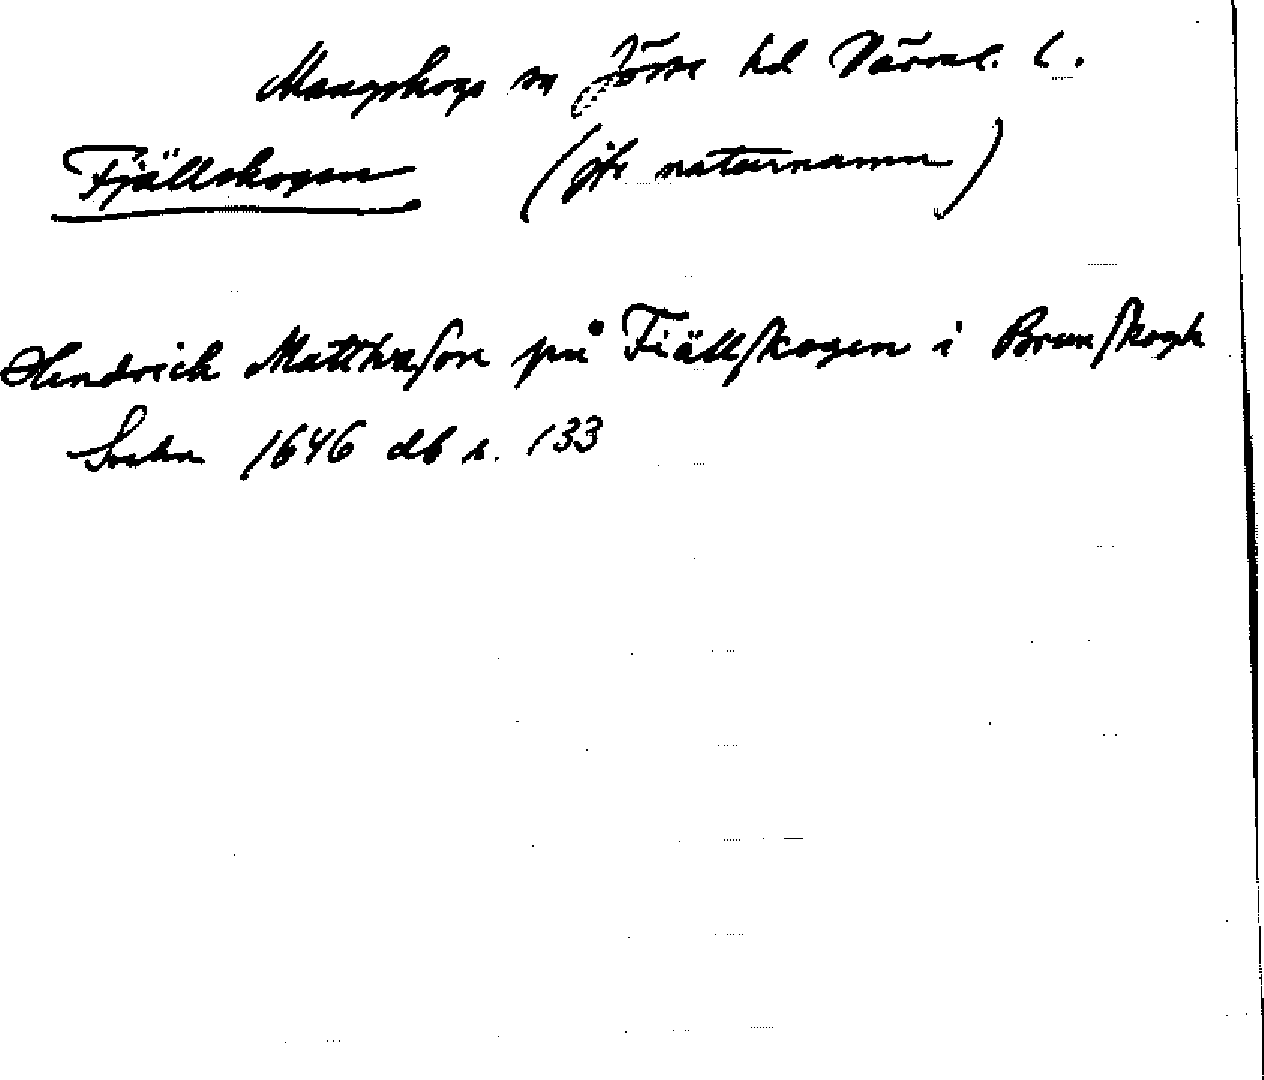 Mangskogs sn Jösse hd Värml. l.
Fjällskogen (jfr naturnamn)
Hendrich Matthsson på Fiällskogen i Brunskogh
Sochn 1646 db s. 133